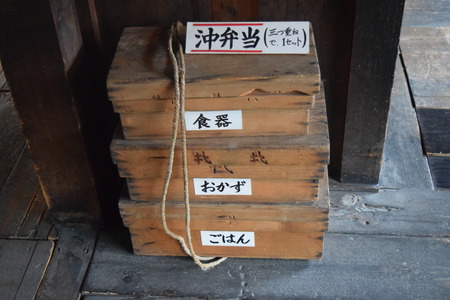 沖弁当
(三つ重ね
で、1セット)
食器
おかず
ごはん